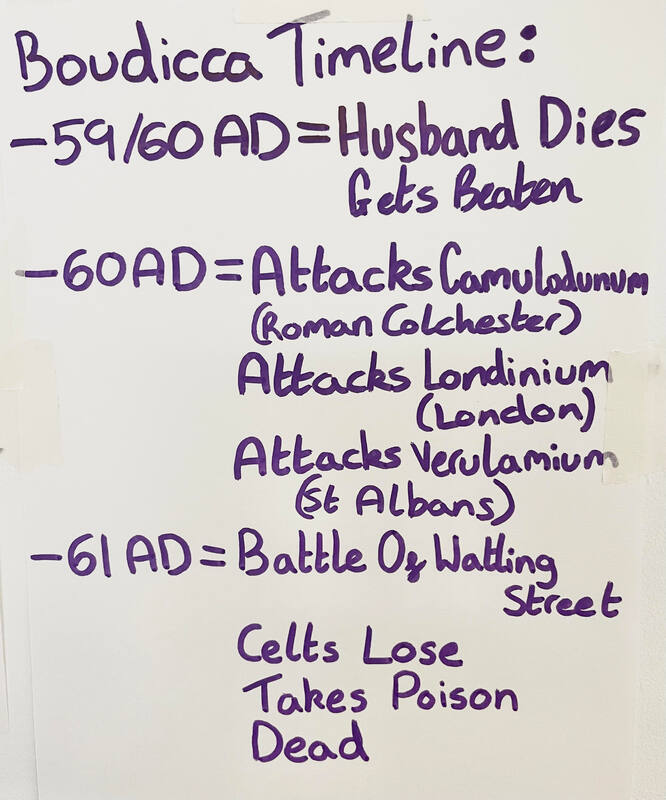 Boudicca Timeline:
-59/60 AD = Husband Dies
Gets Beaten
-60 AD = Attacks Camulodunum
(Roman Colchester)
Attacks Londinium
(London)
Attacks Verulamium
(St Albans)
-61 AD = Battle Of Watling
Street
Celts Lose
Takes Poison
Dead